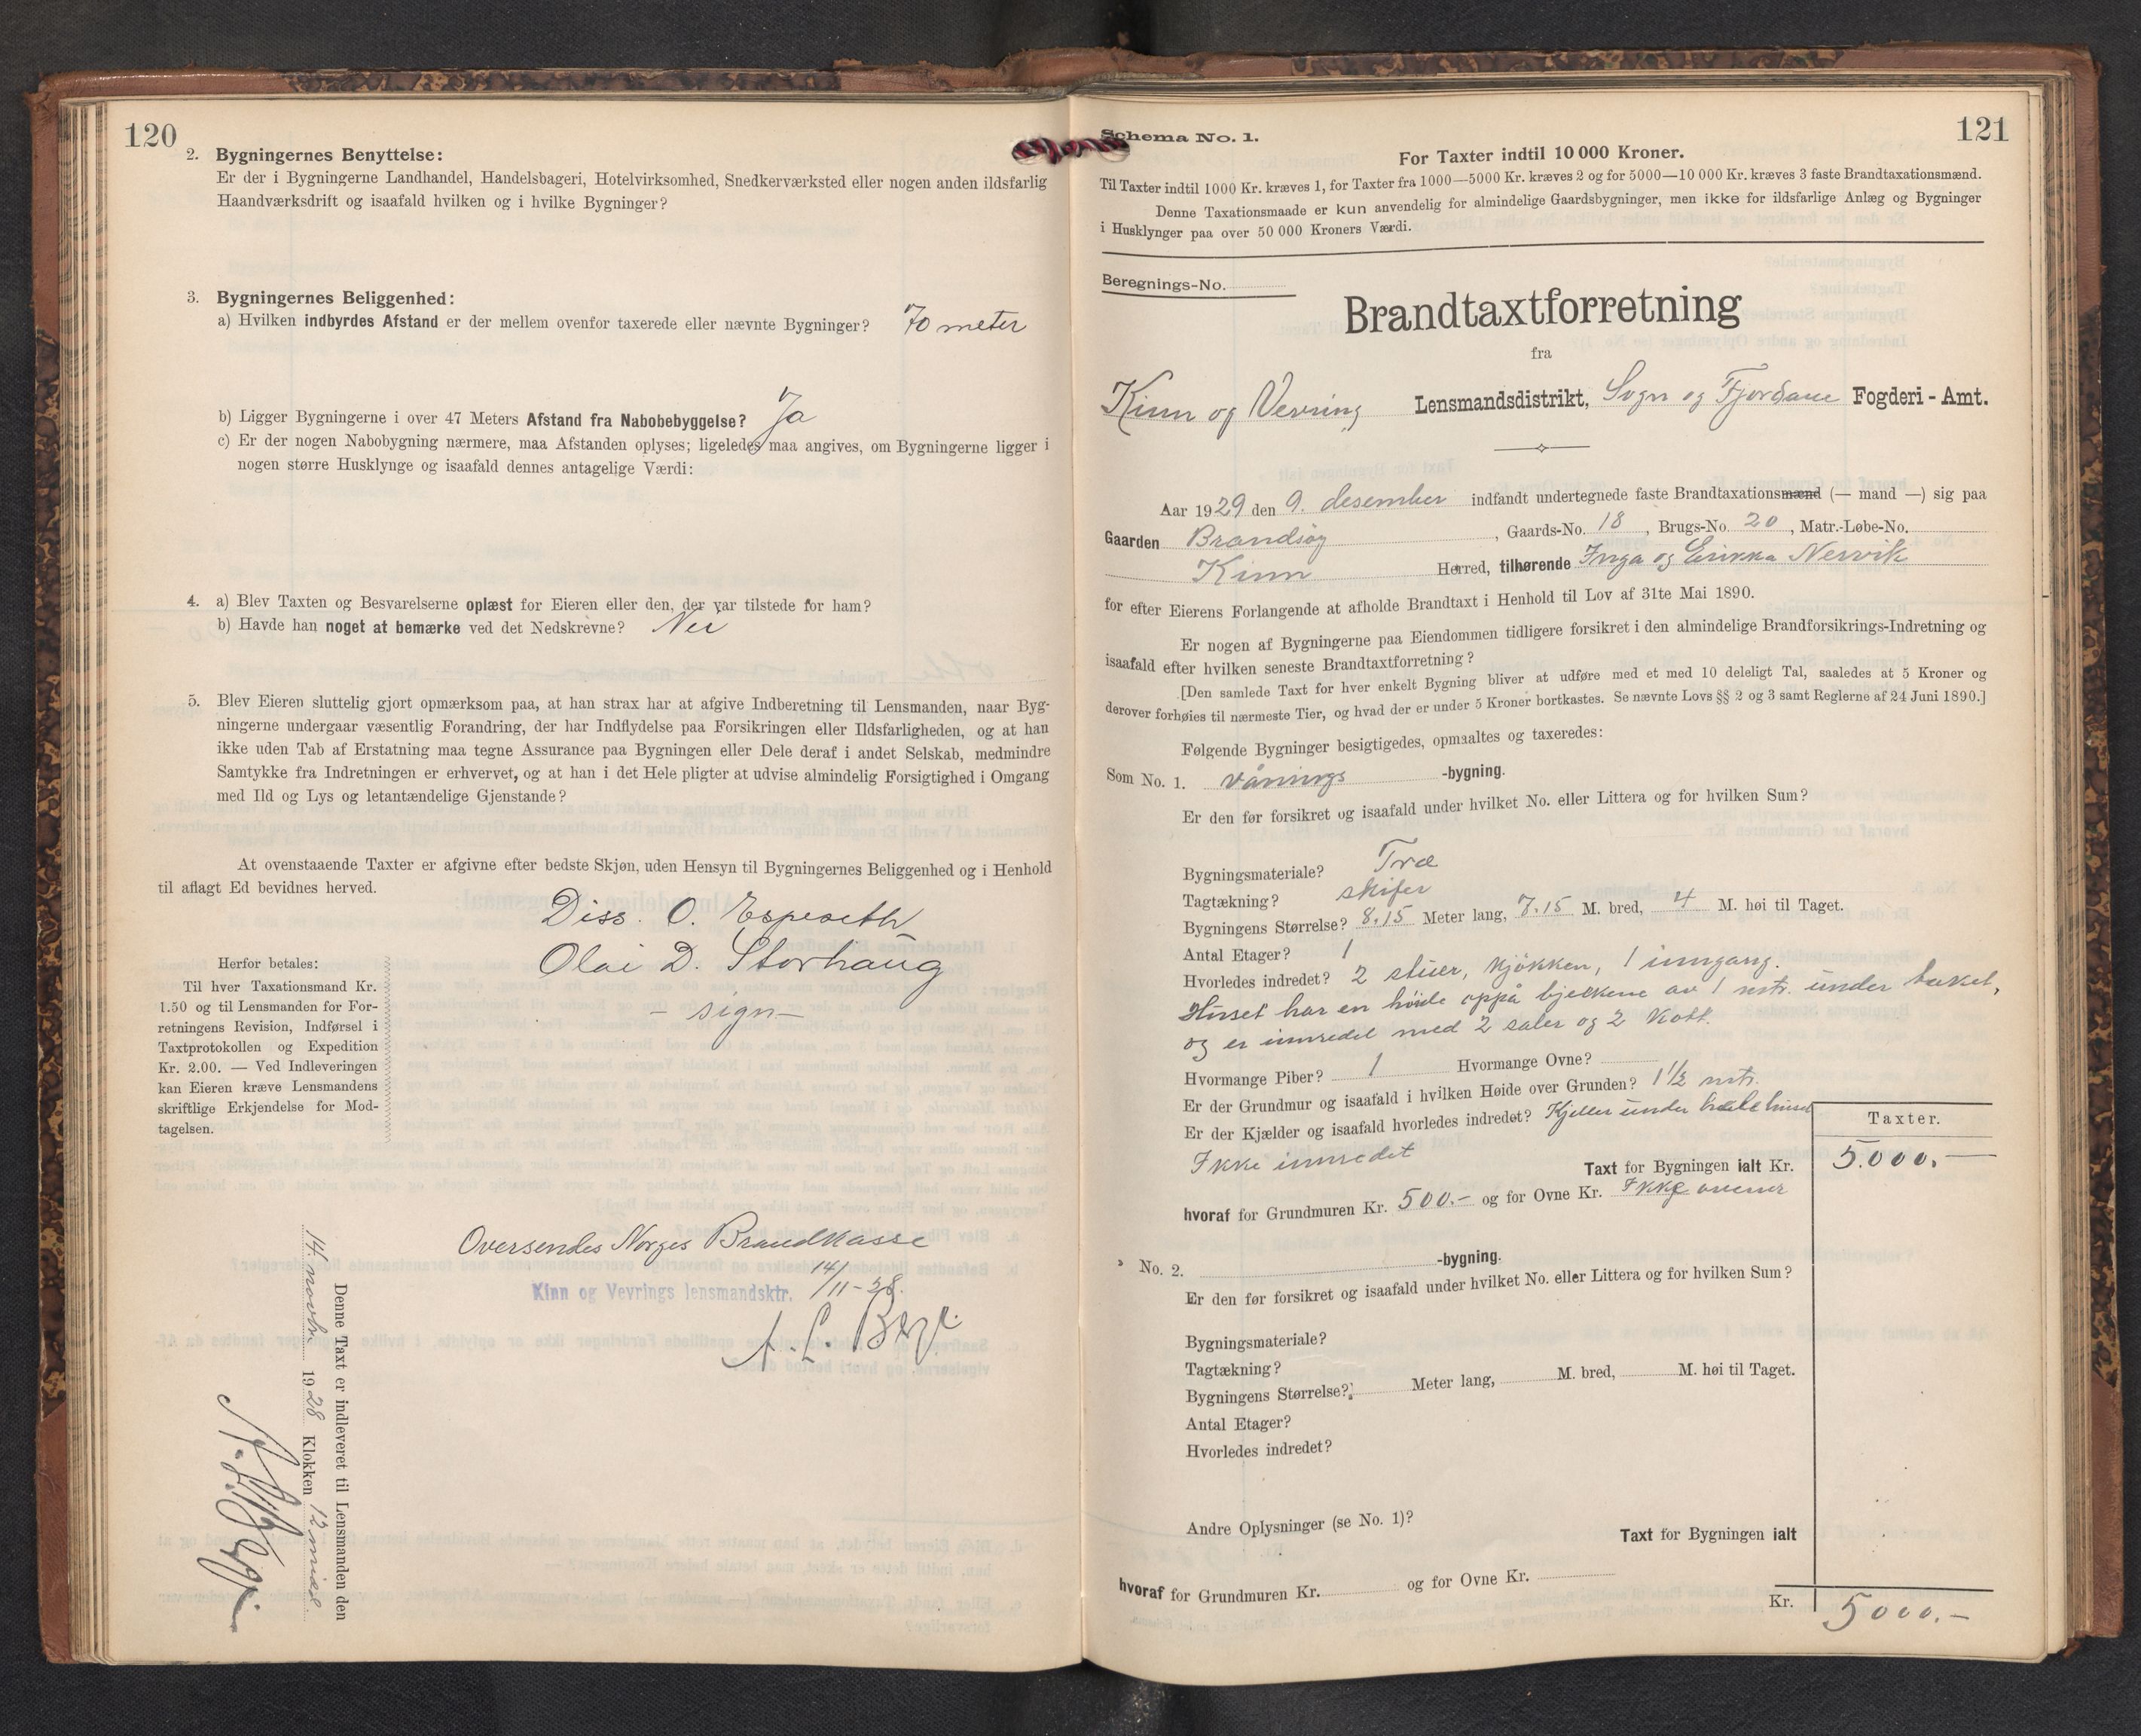 120
2. Bygningernes Benyttelse:
Er der i Bygningerne Landhandel, Handelsbageri, Hotelvirksomhed, Snedkerværksted eller nogen anden ildsfarlig
Haandværksdrift og isaafald hvilken og i hvilke Bygninger?
3. Bygningernes Beliggenhed:
a) Hvilken indbyrdes Afstand er der mellem ovenfor taxerede eller nævnte Bygninger? 70 meter
b) Ligger Bygningerne i over 47 Meters Afstand fra Nabobebyggelse? Ja
c) Er der nogen Nabobygning nærmere, maa Afstanden oplyses; ligeledes maa angives, om Bygningerne ligger i
nogen større Husklynge og isaafald dennes antagelige Værdi:
4. a) Blev Taxten og Besvarelserne oplæst for Eieren eller den, der var tilstede for ham?
b) Havde han noget at bemærke ved det Nedskrevne? Nei
5. Blev Eieren sluttelig gjort opmærksom paa, at han strax har at afgive Indberetning til Lensmanden, naar Byg-
ningerne undergaar væsentlig Forandring, der har Indflydelse paa Forsikringen eller Ildsfarligheden, og at han
ikke uden Tab af Erstatning maa tegne Assurance paa Bygningen eller Dele deraf i andet Selskab, medmindre
Samtykke fra Indretningen er erhvervet, og at han i det Hele pligter at udvise almindelig Forsigtighed i Omgang
med Ild og Lys og letantændelige Gjenstande?
At ovenstaaende Taxter er afgivne efter bedste Skjøn, uden Hensyn til Bygningernes Beliggenhed og i Henhold
til aflagt Ed bevidnes herved.
Diss. O. Espeseth
Olai D. Storhaug
- sign -
Herfor betales:
Til hver Taxationsmand Kr.
1.50 og til Lensmanden for For-
retningens Revision, Indførsel i
Taxtprotokollen og Expedition
Kr. 2.00. — Ved Indleveringen
kan Eieren kræve Lensmandens
skriftlige Erkjendelse for Mod-
tagelsen.
Oversendes Norges Brandkasse
14/11-28.
Kinn og Vevrings lensmandsktr.
Denne Taxt er indleveret til Lensmanden den
14. novbr. 1928 Klokken 12 midd.
121
Schema No. 1.
For Taxter indtil 10 000 Kroner.
Til Taxter indtil 1000 Kr. kræves 1, for Taxter fra 1000—5000 Kr. kræves 2 og for 5000—10 000 Kr. kræves 3 faste Brandtaxationsmænd.
Denne Taxationsmaade er kun anvendelig for almindelige Gaardsbygninger, men ikke for ildsfarlige Anlæg og Bygninger
i Husklynger paa over 50 000 Kroners Værdi.
Beregnings-No.
Brandtaxtforretning
fra
Kinn og Vevring Lensmandsdistrikt, Sogn og Fjordane Fogderi - Amt.
Aar 1929 den 9. desember indfandt undertegnede faste Brandtaxationsmænd (— mand —) sig paa
Gaarden Brandsøy, Gaards-No. 18, Brugs-No. 20, Matr.-Løbe-No.
Kinn Herred, tilhørende Inga og Erikka Nervik
for efter Eierens Forlangende at afholde Brandtaxt i Henhold til Lov af 31te Mai 1890.
Er nogen af Bygningerne paa Eiendommen tidligere forsikret i den almindelige Brandforsikrings-Indretning og
isaafald efter hvilken seneste Brandtaxtforretning?
[Den samlede Taxt for hver enkelt Bygning bliver at udføre med et med 10 deleligt Tal, saaledes at 5 Kroner og
derover forhøies til nærmeste Tier, og hvad der er under 5 Kroner bortkastes. Se nævnte Lovs §§ 2 og 3 samt Reglerne af 24 Juni 1890.]
Følgende Bygninger besigtigedes, opmaaltes og taxeredes:
Som No. 1. vånings -bygning.
Er den før forsikret og isaafald under hvilket No. eller Littera og for hvilken Sum?
Bygningsmateriale? Træ
Tagtækning? skifer
Bygningens Størrelse? 8.15 Meter lang, 7.15 M. bred, 4 M. høi til Taget.
Antal Etager? 1
Hvorledes indredet? 2 stuer, kjøkken, 1 inngang.
Huset har en høide oppå bjelkene av 1 mtr. under taket,
og er innredet med 2 saler og 2 kott.
Hvormange Piber? 1 Hvormange Ovne?
Er der Grundmur og isaafald i hvilken Høide over Grunden? 1 1/2 mtr.
Er der Kjælder og isaafald hvorledes indredet? Kjeller under hele huset
Ikke innredet
Taxter.
Taxt for Bygningen ialt Kr. 5.000.—
hvoraf for Grundmuren Kr. 500.- og for Ovne Kr. Ikke ovner
" No. 2. -bygning.
Er den før forsikret og isaafald under hvilket No. eller Littera og for hvilken Sum?
Bygningsmateriale?
Tagtækning?
Bygningens Størrelse? Meter lang, M. bred, M. høi til Taget.
Antal Etager?
Hvorledes indredet?
Andre Oplysninger (se No. 1)?
Taxt for Bygningen ialt
hvoraf for Grundmuren Kr. og for Ovne Kr.
Kr. 5000.—